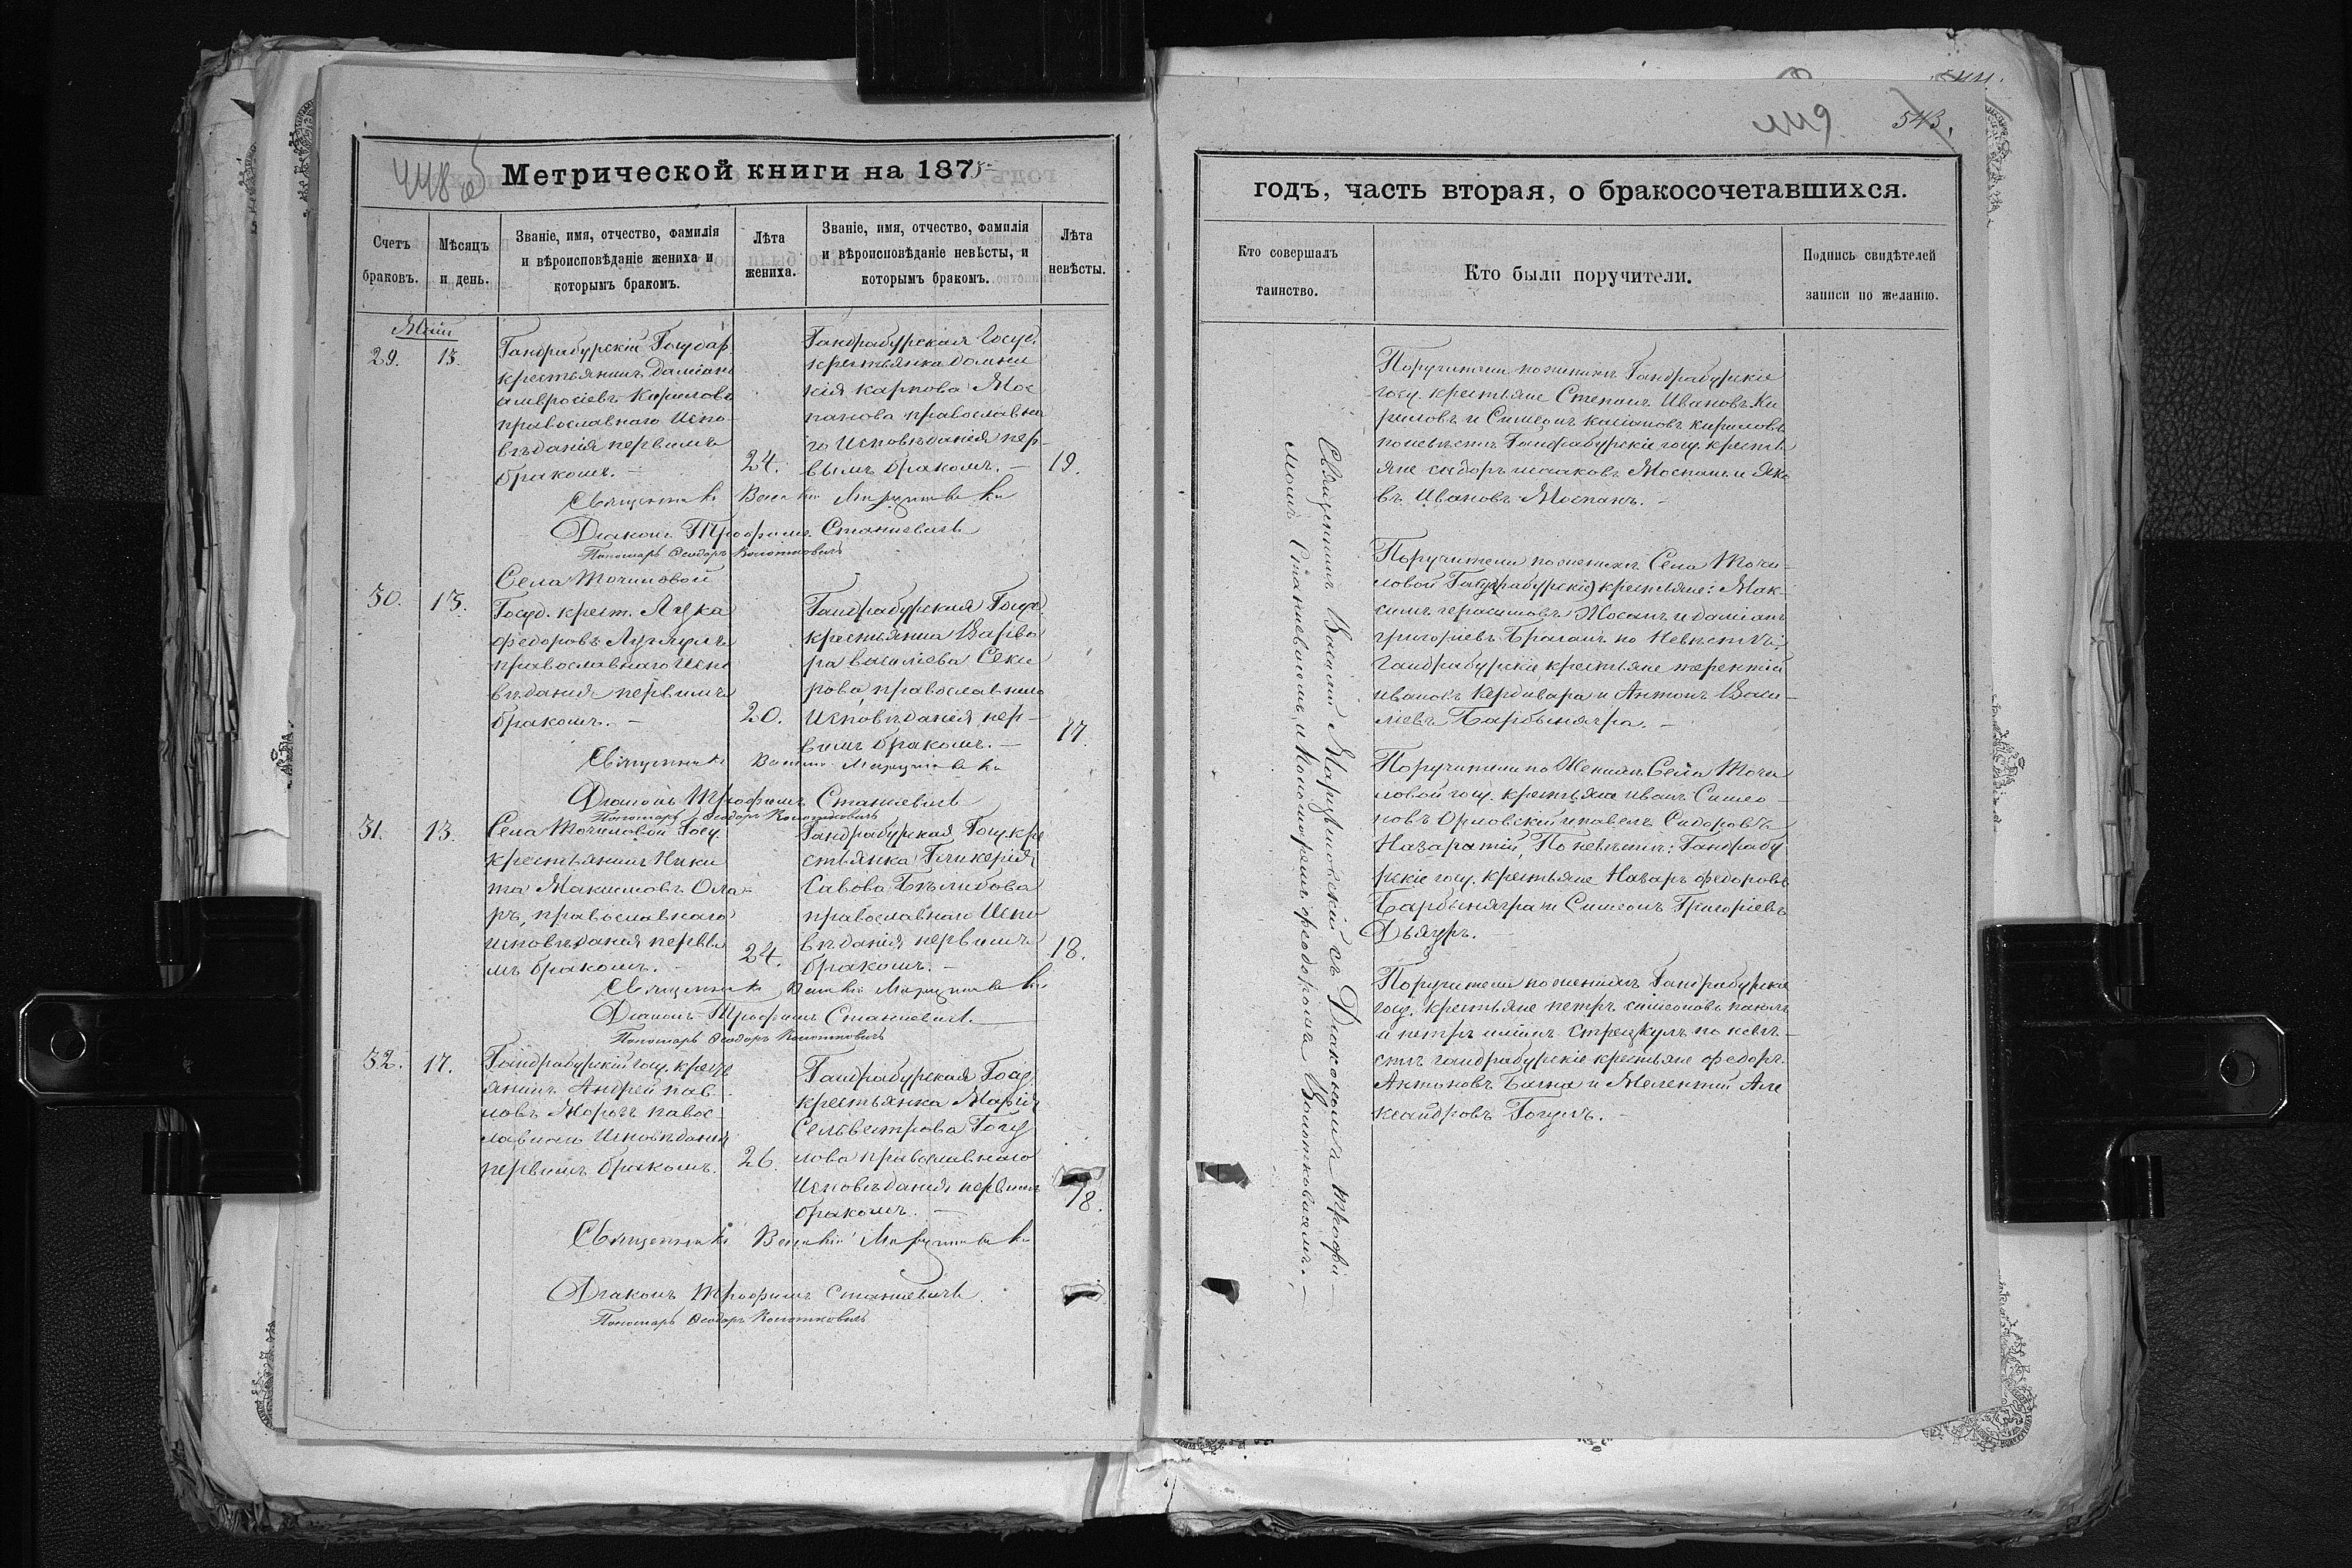 448 об
Метрической книги на 1875
Счетъ браковъ.
Мѣсяцъ и день.
Званіе, имя, отчество, фамилія и вѣроисповѣданіе жениха и которымъ бракомъ.
Лѣта жениха.
Званіе, имя, отчество, фамилія и вѣроисповѣданіе невѣсты, и которымъ бракомъ.
Лѣта невѣсты.
Май
29.
13.
Гандрабурскій Государ.
крестьянинъ Даміанъ
Амвросіевъ Кириловъ
православнаго испо-
вѣданія первымъ
бракомъ. -
24.
Гандрабурская Госуд.
крестьянка Домни
кія Карпова Мос
панова православна
го Исповѣданія пер-
вымъ бракомъ. -
19.
Священникъ Василій
Діаконъ Трофимъ Станиевичъ
Пономарь Ѳеодоръ
30.
13.
Села Точиловой
Госуд. крест. Лука
Федоровъ
православнаго Испо
вѣданія первымъ
бракомъ. -
20.
Гандрабурская Госуд.
крестьянка Варва
ра Василіева Секи
рова, православнаго
Исповѣданія пер-
вымъ бракомъ. -
17.
Священникъ Василій
Діаконъ Трофимъ Станиевичъ
Пономарь Ѳеодоръ
31.
13.
Села Точиловой Госу.
крестьянинъ Ники
та Максимовъ Ола-
ръ, православнаго
исповѣданія первы
мъ бракомъ. -
24.
Гандрабурская Госу. кре
стьянка Гликерія
Савова Бѣликова
православнаго Испо
вѣданія первымъ
бракомъ. -
18.
Священникъ Василій
Діаконъ Трофимъ Станиевичъ. -
Пономарь Ѳеодоръ
32.
17.
Гандрабурскій госу. кресть
янинъ Андрей Пав-
ловъ Морозъ павос-
лавнаго Исповѣданія
первымъ бракомъ.
26.
Гандрабурская Госу.
крестьянка Марія
Сельвестрова Гогу
лова православнаго
Исповѣданія первымъ
бракомъ. -
18.
Священникъ Василій
Діаконъ Трофимъ Станиевичъ.
Пономарь Ѳеодоръ
449.
543.
годъ, часть вторая, о бракосочетавшихся.
Кто совершалъ таинство.
Кто были поручители.
Подпись свидѣтелей записи по желанію.
Священникъ Василій съ Діакономъ Трофи-
момъ Станиевичемъ, и Пономоремъ Феодоромъ
Поручители по жениху Гандрабурскіе
госу. крестьяне Степанъ Ивановъ Ки
риловъ и Симеонъ Касіановъ Кириловъ
по невѣстѣ Гандрабурскіе госу. кресть
яне Сидоръ Исааковъ Моспанъ и Яко
въ Ивановъ Моспанъ. -
Поручители по жениху Села Точи-
ловой крестьяне: Мак-
симъ Герасимовъ и Даміанъ
Григоріевъ Браганъ по Невѣстѣ:
Гандрабурскіе крестьяне Терентій
Ивановъ Кердивара и Антонъ Васи-
ліевъ Барбынягра. -
Поручители по Жениху Села Точи
ловой госу. крестьяне Иванъ Симео-
новъ Орловскій и Павелъ Сидоровъ
Назаратій, По невѣстѣ: Гандрабу
рскіе госу. крестьяне Назаръ Федоровъ
Барбынягра и Симеонъ Григоріевъ
Дьяуръ.
Поручители по жениху Гандрабурскіе
госу. крестьяне Петръ Симеоновъ
и Петръ по невѣ-
стѣ гандрабурскіе крестьяне Федоръ
Антоновъ Бачка и Мелентій Але
ксандровъ Гогулъ. -